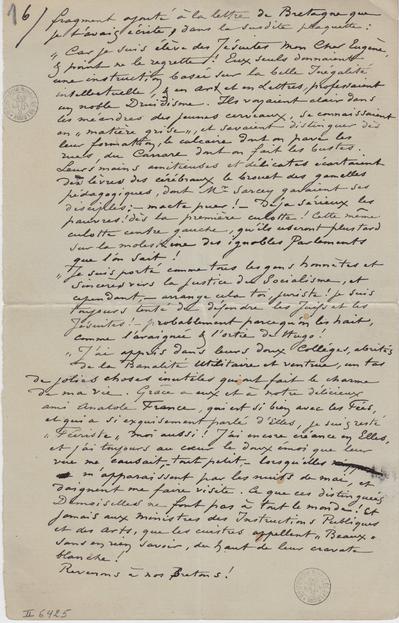 16/ fragment ajouté à la lettre de Bretagne que
je t'avais écrite, dans la susdite plaquette:
"Car je suis élève des Jésuites Mon Cher Eugène,
& point ne le regrette! Eux seuls donnaient
une instruction basée sur la belle Inégalité
intellectuelle, & en Art et en Lettres, professaient
un noble Druidisme. Ils voyaient clair dans
les méandres des jeunes cerveaux, se connaissaient
en "matière grise", et savaient distinguer dès
leur formation, le calcaire dont on pave les
rues, du Carrare dont on fait les bustes.
Leurs mains amitieuses et délicates écartaient
des lèvres des cérébraux le brouet des gamelles
pédagogiques, dont Mr Sarcey gavaient ses
disciples; - macte puer! - Déjà sérieux les
pauvres! dès la première culotte! Cette même
culotte centre gauche, qu'ils useront plus tard
sur la moleskine des ignobles Parlements
que l'on sait!
"Je suis porté comme tous les gens honnêtes et
sincères vers la justice du Socialisme, et
cependant, - arrange cela toi, juriste! je suis
toujours tenté de défendre les Juifs et les
Jésuites! - probablement parce qu'on les hait,
comme l'araignée & l'ortie de Hugo.
"J'ai appris dans leurs doux Collèges, abrités
de la Banalité Utilitaire et ventrue, un tas
de jolies choses inutiles qui ont fait le charme
de ma vie. Grâce à eux et à notre délicieux
ami Anatole France, qui est si bien avec les Fées,
et qui a si exquisement parlé d'Elles, je suis resté
"Féeriste" moi aussi! J'ai encore créance en Elles,
et j'ai toujours au cœur le doux émoi que leur
vue me causait, tout petit, - lorsqu'elles
m'apparaissent par les nuits de mai, et
daignent me faire visite. Ce que ces distinguées
Demoiselles ne font pas à tout le monde! Et
jamais aux ministres des Instructions Publiques
et des Arts, que les cuistres appellent "Beaux"
sans en rien savoir, du haut de leur cravate
blanche!
Revenons à nos Bretons!
II 6425